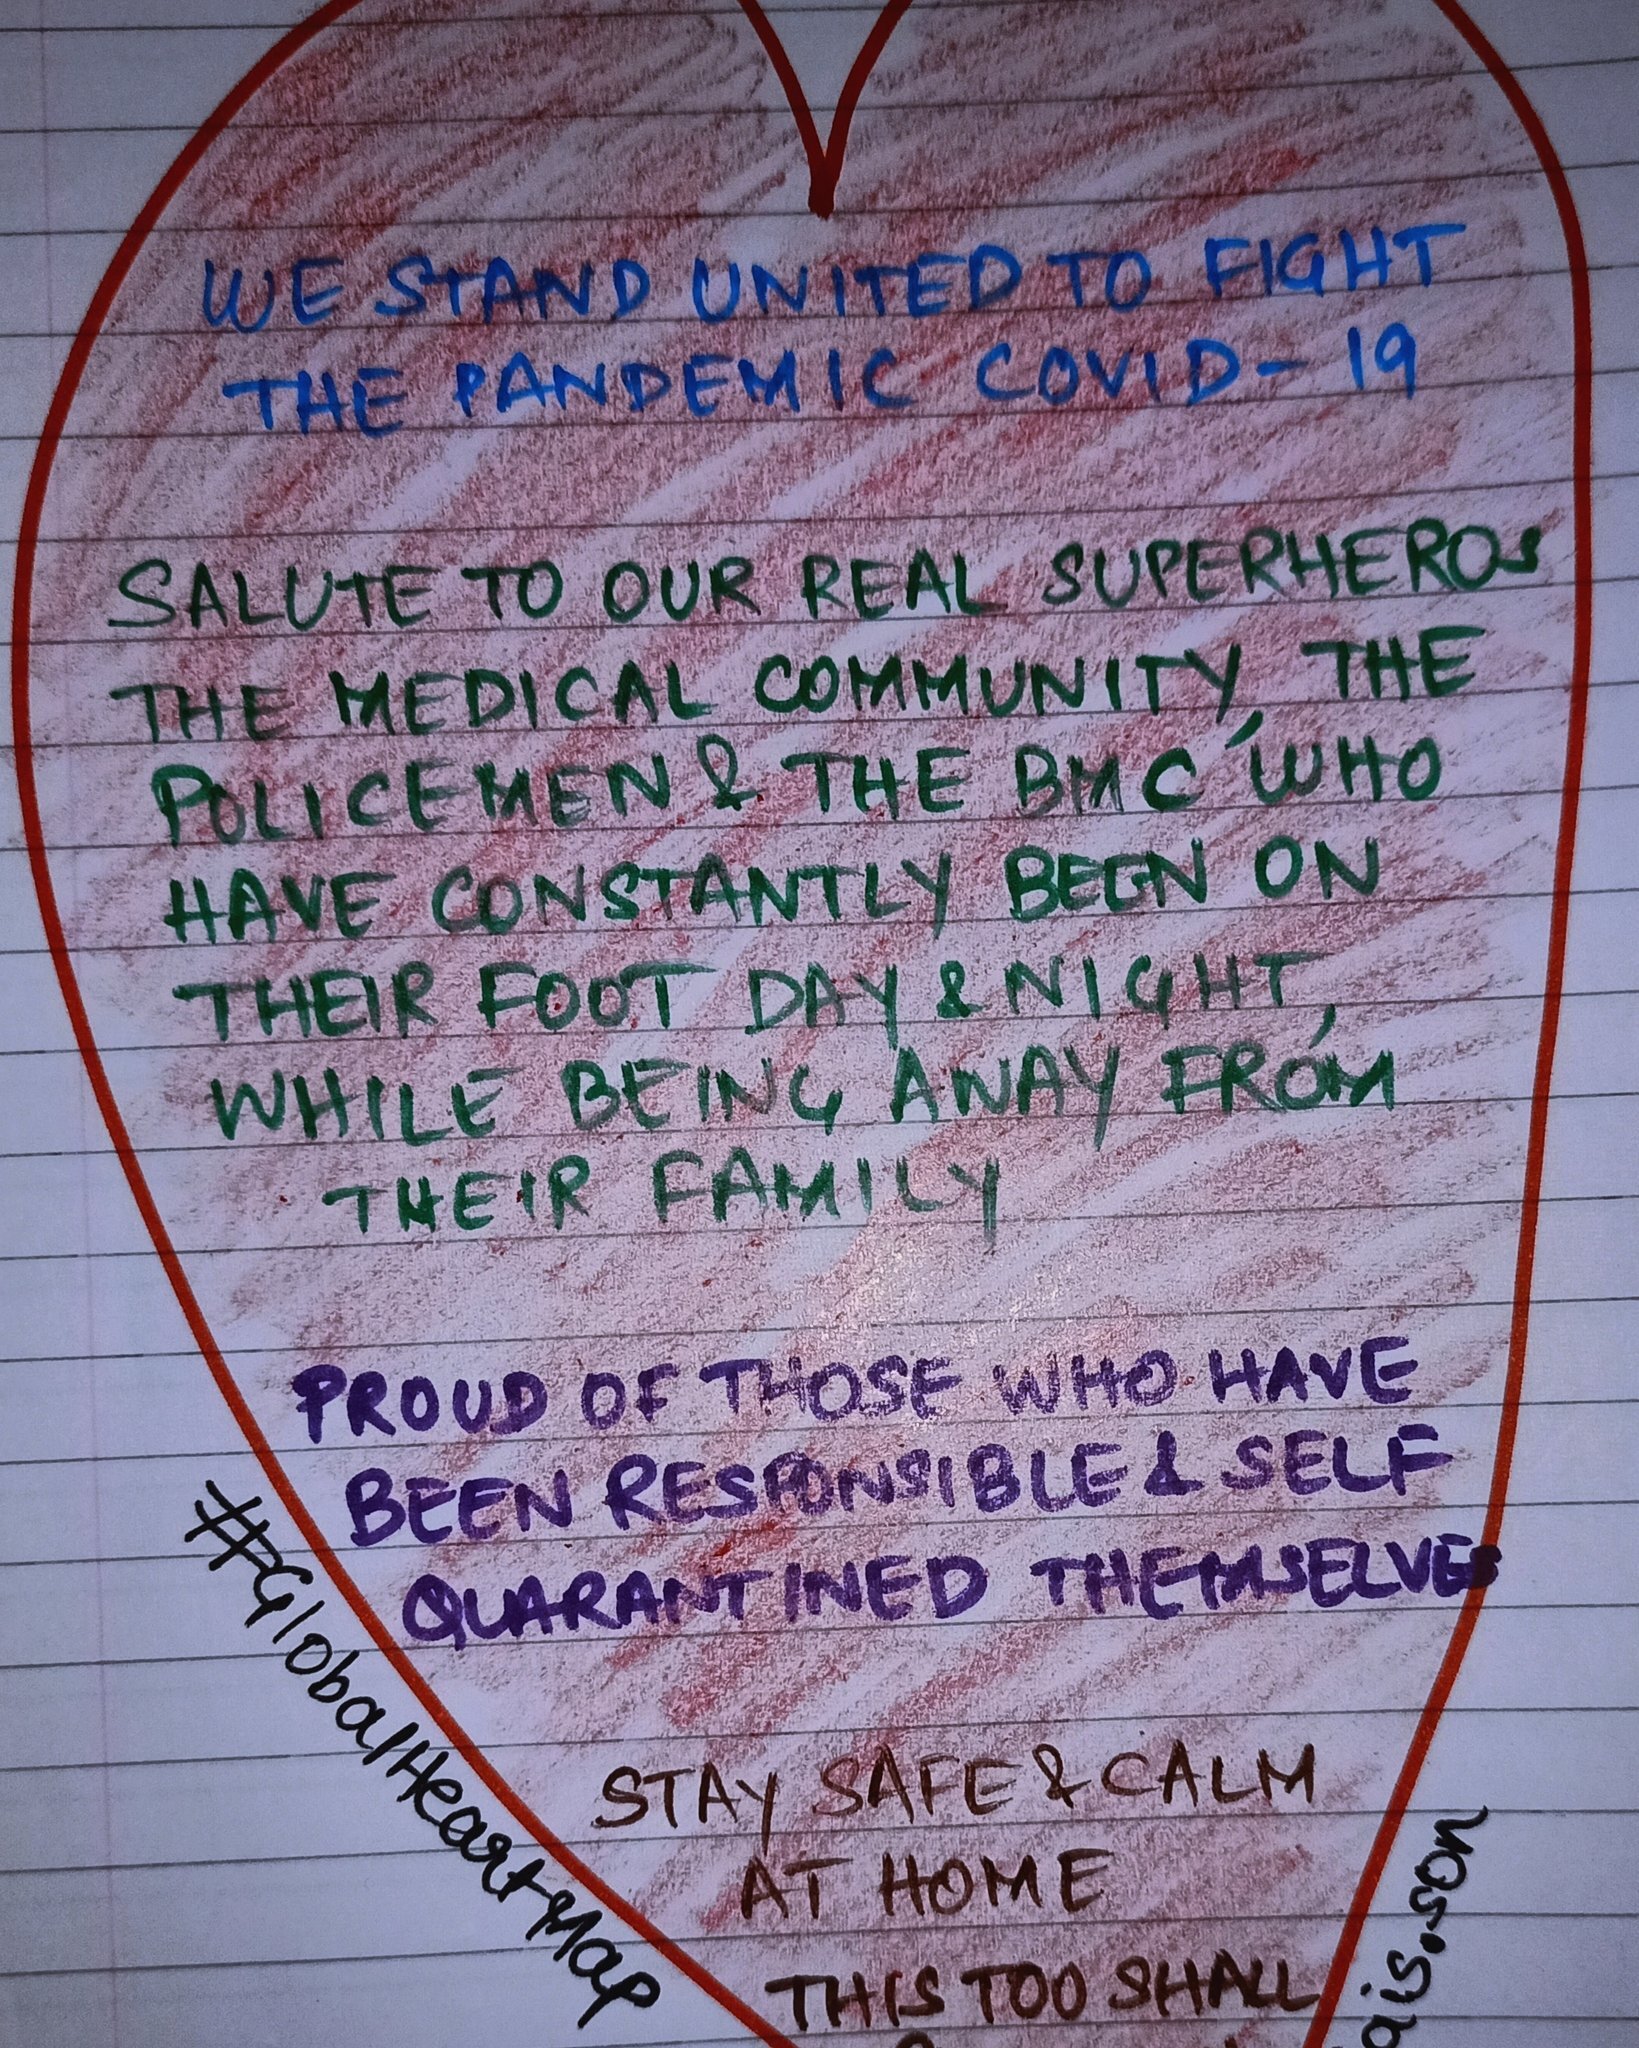 WE STAND UNITED TO FIGHT
THE PANDEMIC COVID-19
SALUTE TO OUR REAL SUPERHEROS
THE MEDICAL COMMUNITY, THE
POLICEMEN & THE BMC WHO
HAVE CONSTANTLY BEEN ON
THEIR FOOT DAY & NIGHT,
WHILE BEING AWAY FROM
THEIR FAMILY
PROUD OF THOSE WHO HAVE
BEEN RESPONSIBLE & SELF
QUARANTINED THEMSELVES
STAY SAFE & CALM
AT HOME
THIS TOO SHALL
#GlobalHeartMap
ais.son